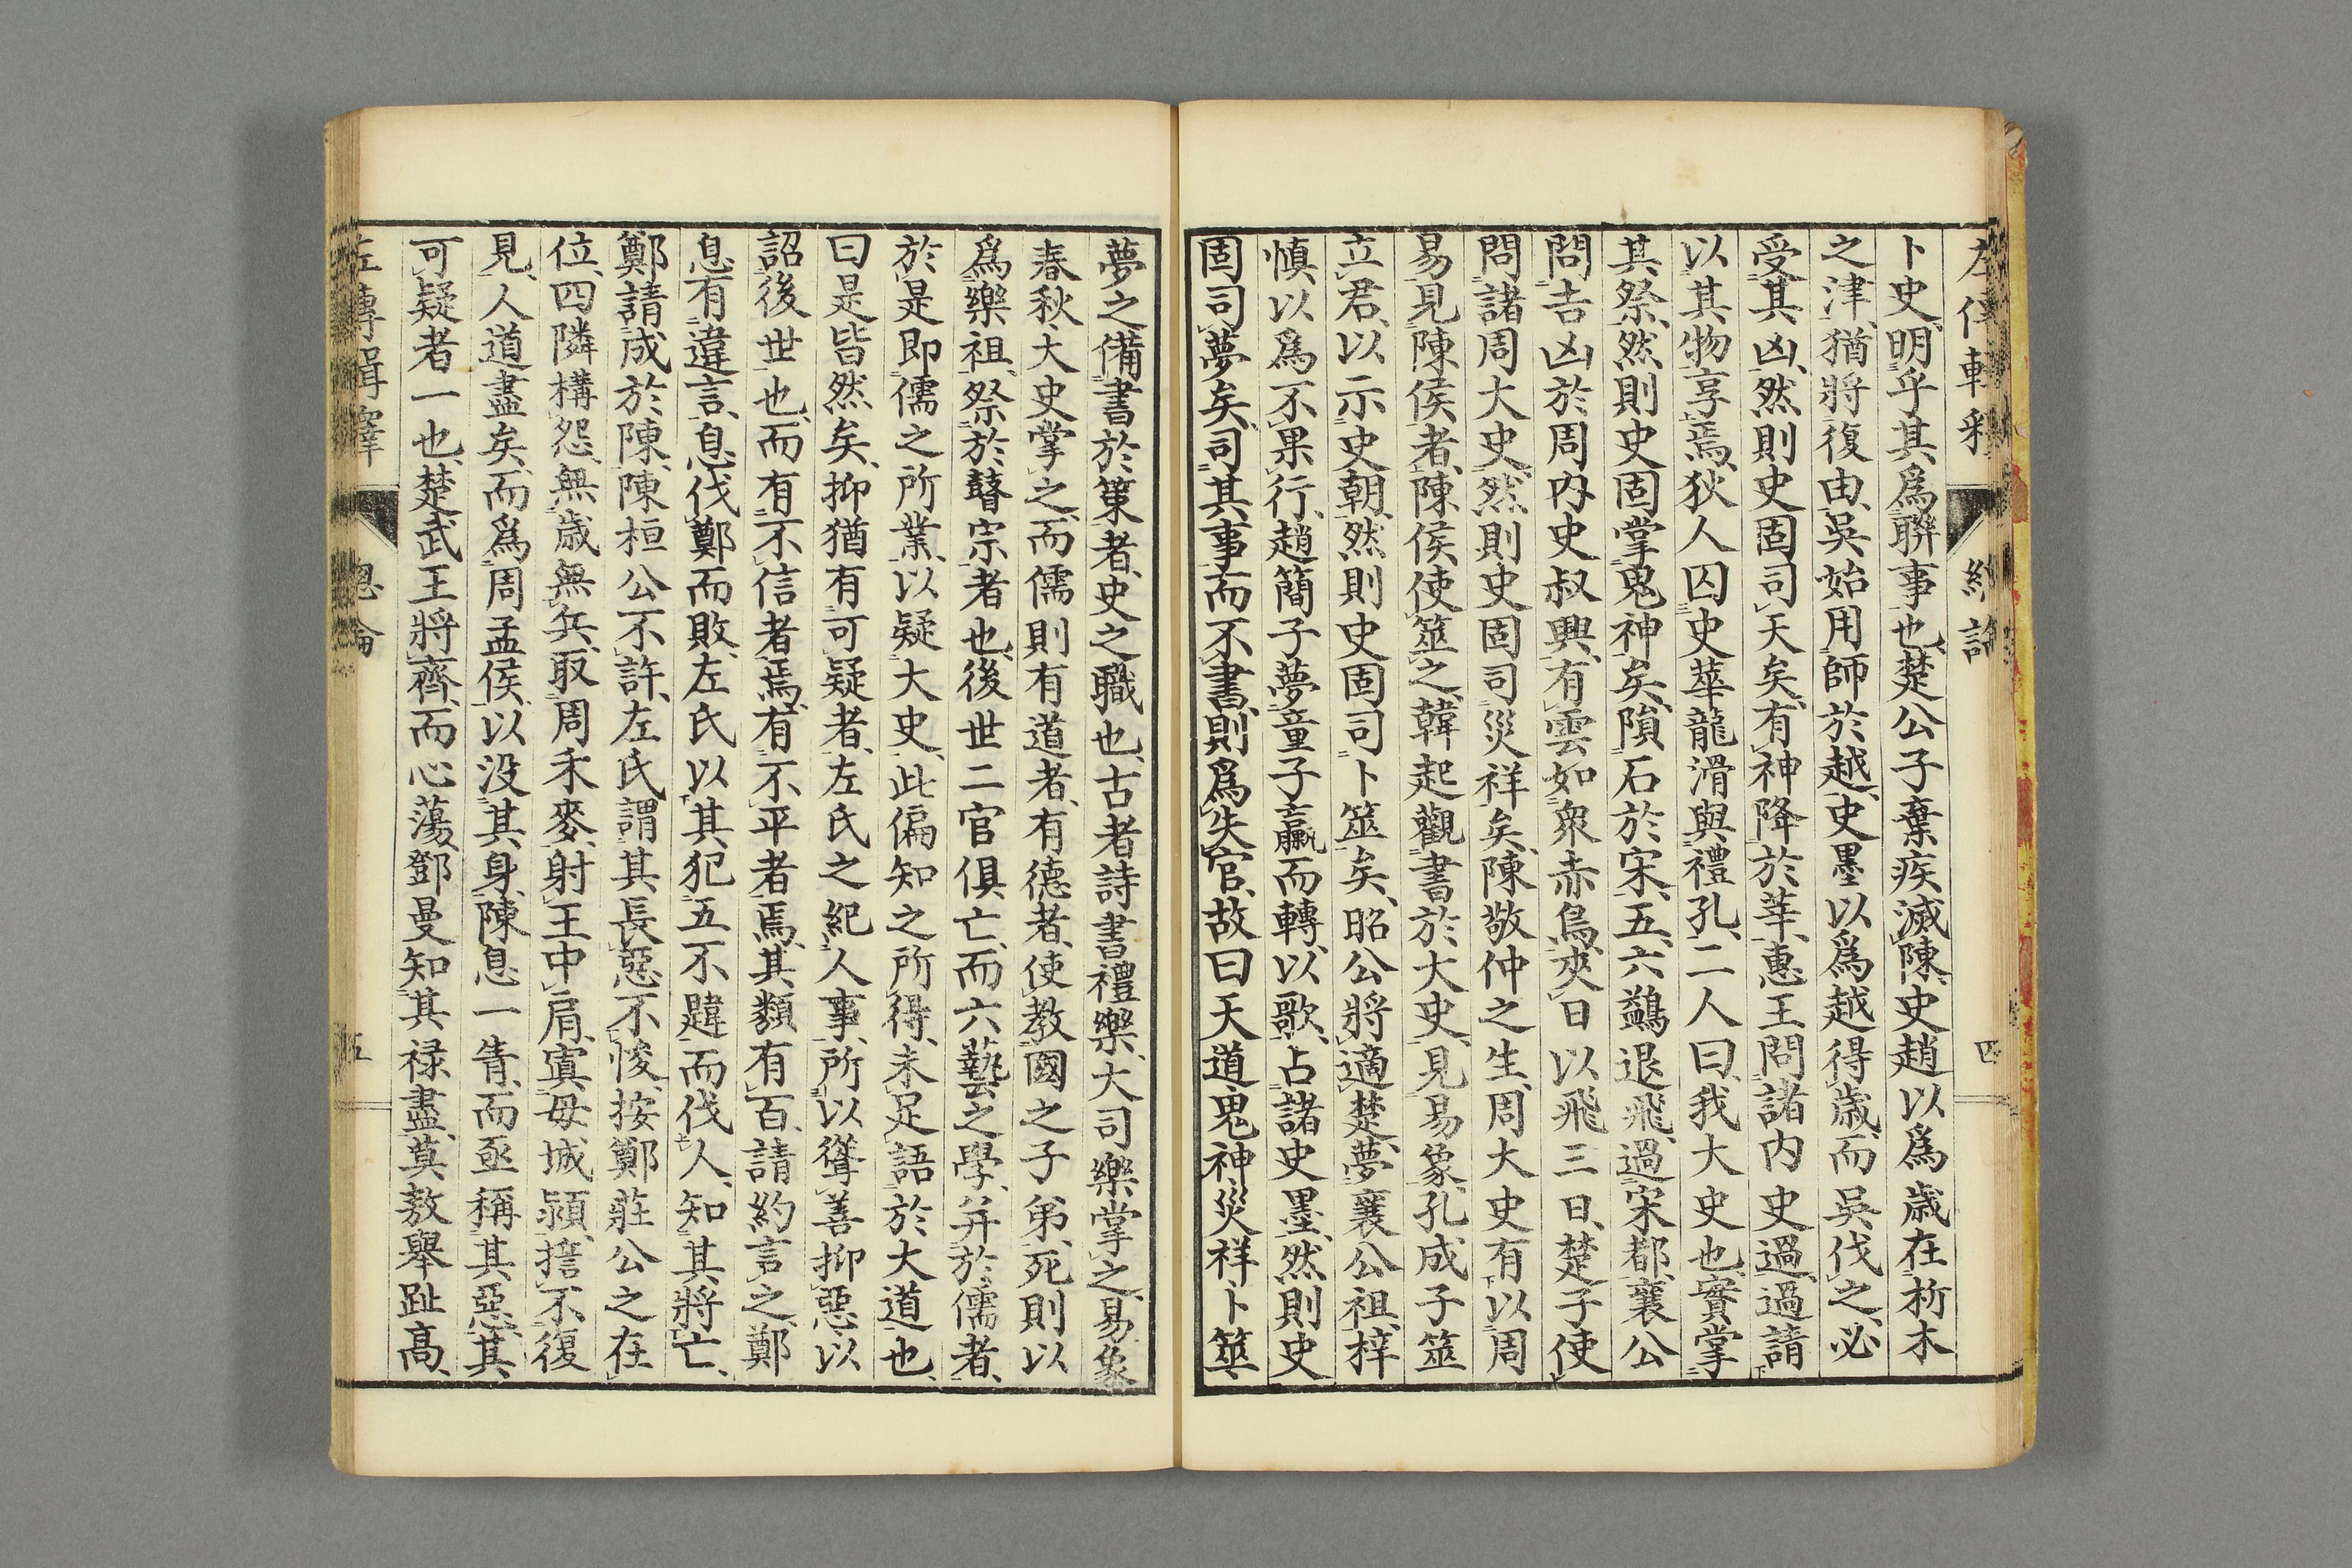 卜史、明乎其爲聯事也、楚公子棄疾滅陳、史趙以爲歳在析木
之津、猶將復由、吳始用師於越、史墨以爲越得歳、而吳伐之、必
受其凶、然則史固司天矣、有神降於莘、惠王問諸内史過、過請
以其物享焉、狄人囚史華龍滑與禮孔、二人曰、我大史也、實掌
其祭、然則史固掌鬼神矣、隕石於宋、五、六鷁退飛、過宋都、襄公
問吉凶於周内史叔興、有雲如衆赤烏、夾日以飛三日、楚子使
問諸周大史、然則史固司災祥矣、陳敬仲之生、周大史有以周
易見陳侯者、陳侯使筮之、韓起觀書於大史、見易象、孔成子筮
立君、以示史朝、然則史固司卜筮矣、昭公將適楚、夢襄公祖、梓
慎以爲不果行、趙簡子夢童子臝而轉以歌、占諸史墨、然則史
固司夢矣、司其事而不書、則爲失官、故曰天道鬼神災祥卜筮
夢之備書於策者、史之職也、古者詩書禮樂、大司樂掌之、易象
春秋、大史掌之、而儒則有道者、有德者、使教國之子弟、死則以
爲樂祖、祭於瞽宗者也、後世二官俱亡、而六藝之學、并於儒者、
於是即儒之所業、以疑大史、此偏知之所得、未足語於大道也、
曰是皆然矣、抑猶有可疑者、左氏之紀人事、所以聳善抑惡、以
詔後世也、而有不信者焉、有不平者焉、其類有百、請約言之、鄭
息有違言、息伐鄭而敗、左氏以其犯五不韙而伐人、知其將亡、
鄭請成於陳、陳桓公不許、左氏謂其長惡不悛、按鄭莊公之在
位、四隣構怨、無歳無兵、取周禾麥、射王中肩、寘母城潁、誓不復
見、人道盡矣、而爲周孟侯、以没其身、陳息一眚、而亟稱其惡、其
可疑者一也、楚武王將齊、而心蕩、鄧曼知其禄盡、莫敖舉趾高、
總論
五